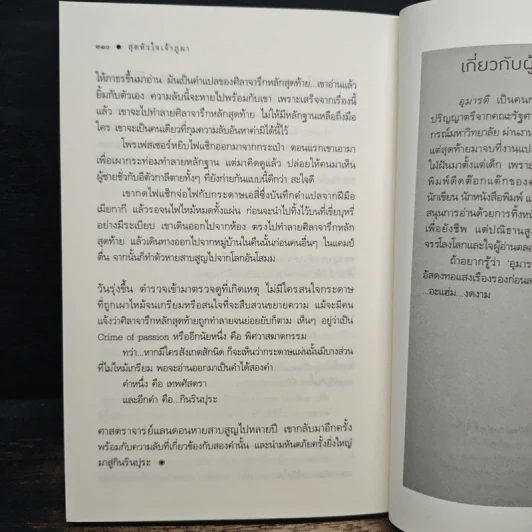 ๓๑๐ ● สุดหัวใจเจ้าภูผา
ให้ภาธรขึ้นมาอ่าน มันเป็นคำแปลของศิลาจารึกหลักสุดท้าย...เขาอ่านแล้ว
ยิ้มกับตัวเอง ความลับนี้จะหายไปพร้อมกับเขา เพราะเสร็จจากเรื่องนี้
แล้ว เขาจะไปทำลายศิลาจารึกหลักสุดท้าย ไม่ให้มีหลักฐานเหลือถึงมือ
ใคร เขาจะเป็นคนเดียวที่กุมความลับอันหาค่ามิได้นี้ไว้
โพรเฟสเซอร์หยิบไฟแช็กออกมาจากกระเป๋า ตอนแรกเขาเอามา
เพื่อเผากระท่อมทำลายหลักฐาน แต่มาคิดดูแล้ว ปล่อยให้คนมาเห็น
ผู้ชายชั่วกับอีตัวกาลีตายทั้งๆ ที่ยังก่ายกันแบบนี้ดีกว่า สะใจดี
เขากดไฟแช็กจ่อไฟกับกระดาษเอสี่ซึ่งบันทึกคำแปลจากฝีมือ
เมียกาก็ แล้วรอจนไฟไหม้หมดทั้งแผ่น ก่อนจะนำไปทิ้งไว้บนที่เขี่ยบุหรี่
อย่างมีระเบียบ เขาเดินออกไปจากห้อง ตรงไปทำลายศิลาจารึกหลัก
สุดท้าย แล้วเดินทางออกไปจากหมู่บ้านในคืนนั้นก่อนคนอื่นๆ ในแคมป์
ตื่น จากนั้นก็ทำตัวหายสาบสูญไปจากโลกอันโสมม
วันรุ่งขึ้น ตำรวจเข้ามาตรวจดูที่เกิดเหตุ ไม่มีใครสนใจกระดาษ
ที่ถูกเผาไหม้จนเกรียมหรือสนใจที่จะสืบสวนขยายความ แม้จะมีคน
แจ้งว่าศิลาจารึกหลักสุดท้ายถูกทำลายจนย่อยยับก็ตาม เห็นๆ อยู่ว่าเป็น
Crime of passion หรืออีกนัยหนึ่ง คือ พิศวาสฆาตกรรม
ทว่า...หากมีใครสังเกตสักนิด ก็จะเห็นว่ากระดาษแผ่นนั้นมีบางส่วน
ที่ไม่ไหม้เกรียม พอจะอ่านออกมาเป็นคำได้สองคำ
คำหนึ่ง คือ เทพศัสตรา
และอีกคำ คือ...กินรินปุระ
ศาสตราจารย์แลนดอนหายสาบสูญไปหลายปี เขากลับมาอีกครั้ง
พร้อมกับความลับที่เกี่ยวข้องกับสองคำนั้น และนำมหันตภัยครั้งยิ่งใหญ่
มาสู่กินรินปุระ ●
เกี่ยวกับผู้
อุมารตี เป็นคน
ปริญญาตรีจากคณะรัฐศา
กรณ์มหาวิทยาลัย ผ่านงาน
แต่สุดท้ายมาจบที่งานแป
ไม่ฝันมาตั้งแต่เด็ก เพราะ
พิมพ์ดีดต๊อกแต๊กของค
นักเขียน นักหนังสือพิมพ์ แ
สนุนการอ่านด้วยการทิ้งหนั
เพื่อยังชีพ แต่ปณิธานสูง
จรรโลงโลกและใจผู้อ่านตลอด
ถ้าอยากรู้ว่า 'อุมาร
อัสดงทอแสงเรืองรองก่อนล
...อะแฮ่ม...งดงาม